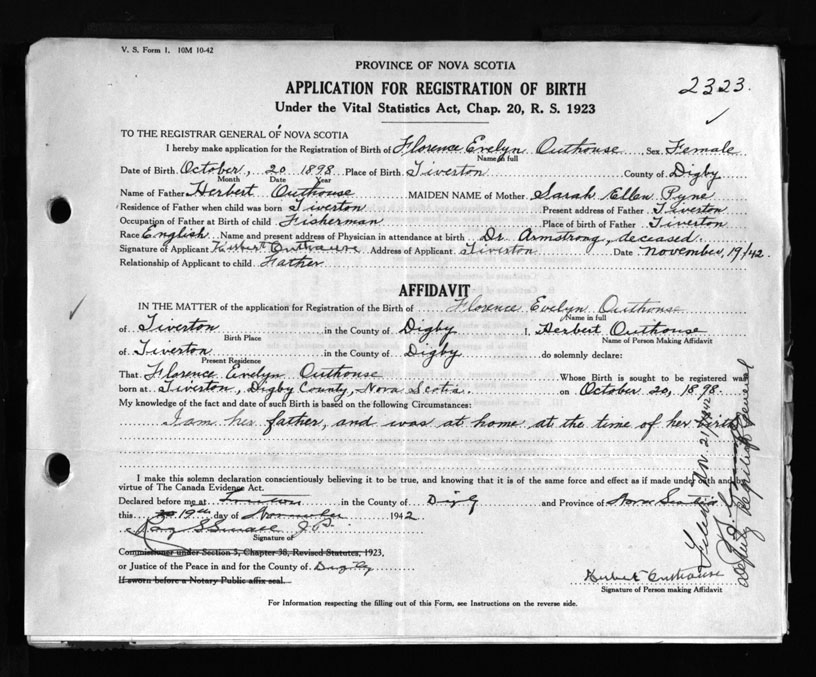 V. S. Form 1. 10M 10-42
PROVINCE OF NOVA SCOTIA
2323.
APPLICATION FOR REGISTRATION OF BIRTH
Under the Vital Statistics Act, Chap. 20, R. S. 1923
TO THE REGISTRAR GENERAL OF NOVA SCOTIA
I hereby make application for the Registration of Birth of Florence Evelyn Outhouse, Sex Female
Name in full
Date of Birth October, 20 1898 Place of Birth Tiverton County of Digby
Month Date Year
Name of Father Herbert Outhouse MAIDEN NAME of Mother Sarah Ellen Pyne
Residence of Father when child was born Tiverton Present address of Father Tiverton
Occupation of Father at Birth of child Fisherman Place of birth of Father Tiverton
Race English Name and present address of Physician in attendance at birth Dr. Armstrong, deceased.
Signature of Applicant Herbert Outhouse Address of Applicant Tiverton Date November, 19/42.
Relationship of Applicant to child Father
AFFIDAVIT
IN THE MATTER of the application for Registration of the Birth of Florence Evelyn Outhouse
Name in full
of Tiverton in the County of Digby I, Herbert Outhouse
Birth Place Name of Person Making Affidavit
of Tiverton in the County of Digby do solemnly declare:
Present Residence
That Florence Evelyn Outhouse Whose Birth is sought to be registered was
born at Tiverton, Digby County, Nova Scotia. on October 20, 1898.
My knowledge of the fact and date of such Birth is based on the following Circumstances:
I am her father, and was at home at the time of her birth
I make this solemn declaration conscientiously believing it to be true, and knowing that it is of the same force and effect as if made under oath and by
virtue of The Canada Evidence Act.
Declared before me at Tiverton in the County of Digby and Province of Nova Scotia
this 19th day of November 1942
J.P.
Signature of
Commissioner under Section 3, Chapter 38, Revised Statutes, 1923,
or Justice of the Peace in and for the County of Digby
If sworn before a Notary Public affix seal.
Herbert Outhouse
Signature of Person making Affidavit
For Information respecting the filling out of this Form, see Instructions on the reverse side.
Deputy Registrar General